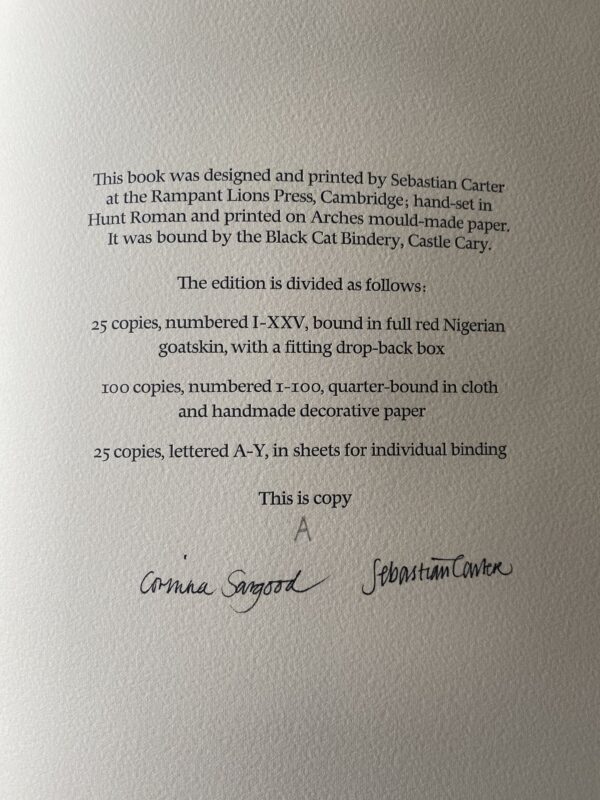 This book was designed and printed by Sebastian Carter
at the Rampant Lions Press, Cambridge; hand-set in
Hunt Roman and printed on Arches mould-made paper.
It was bound by the Black Cat Bindery, Castle Cary.
The edition is divided as follows:
25 copies, numbered I–XXV, bound in full red Nigerian
goatskin, with a fitting drop-back box
100 copies, numbered 1–100, quarter-bound in cloth
and handmade decorative paper
25 copies, lettered A–Y, in sheets for individual binding
This is copy
A
Corinna Sargood Sebastian Carter